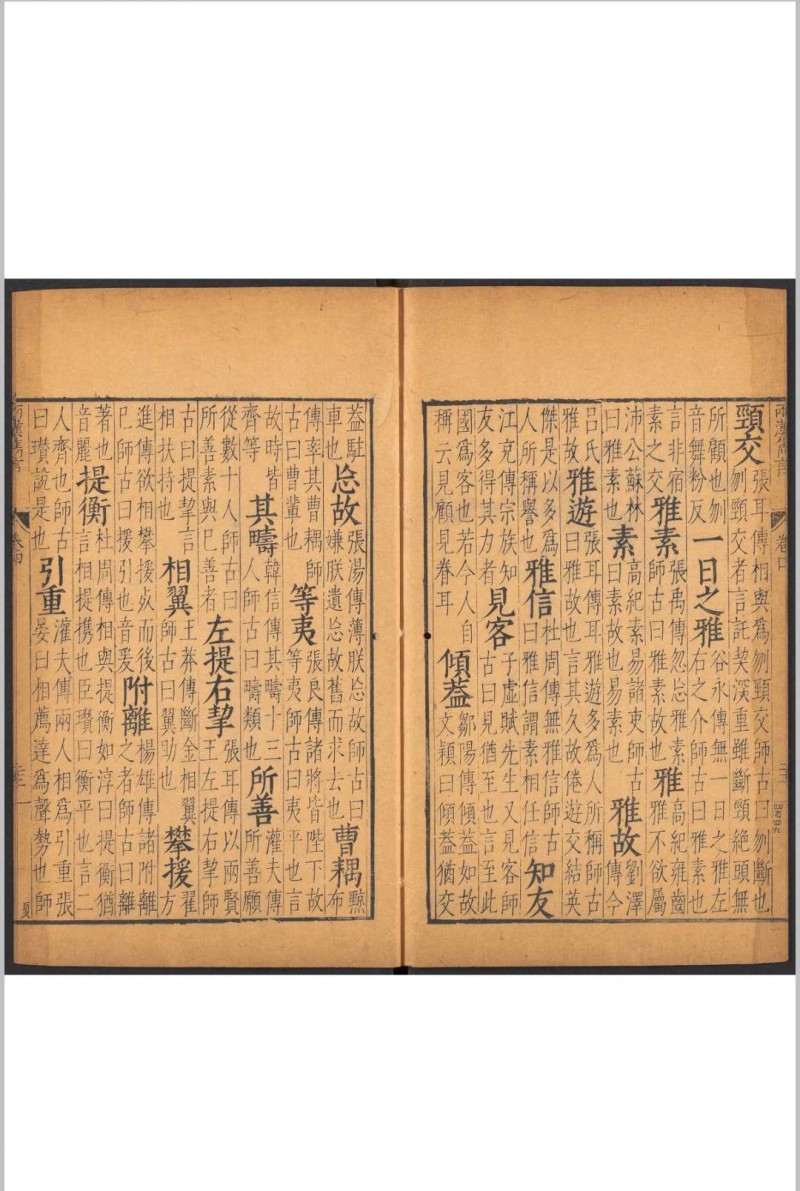 頸交張耳傳相與爲刎頸交師古曰刎斷也刎頸交者言託契深重雖斷頸絕頭無
所顧也刎音舞粉反一日之雅谷永傳無一日之雅左右之介師古曰雅素也
言非宿素之交雅素張禹傳忽忘雅素師古曰雅素故也雅高紀雍齒雅不欲屬
沛公蘇林曰雅素也素高紀素易諸吏師古曰素故也易素也雅故劉澤傳今
呂氏雅故雅遊張耳傳耳雅遊多爲人所稱師古曰雅故也言其久故倦遊交結英
傑是以多爲人所稱譽也雅信杜周傳無雅信師古曰雅信謂素相任信知友
江充傳宗族知友多得其力者見客子虛賦先生又見客師古曰見猶至也言至此
國爲客也若今人自稱云見顧見眷耳傾蓋鄒陽傳傾蓋如故文穎曰傾蓋猶交
兩漢雋言
卷四
蓋駐車也忘故張湯傳薄朕忘故師古曰嫌朕遺忘故舊而求去也曹耦黥布
傳率其曹耦師古曰曹輩也等夷張良傳諸將皆陛下故等夷師古曰夷平也言
故時皆齊等其疇韓信傳其疇十三人師古曰疇類也所善灌夫傳所善願
從數十人師古曰所善素與巳善者左提右挈張耳傳以兩賢王左提右挈師
古曰提挈言相扶持也相翼王莽傳斷金相翼師古曰翼助也攀援翟方
進傳欲相攀援死而後巳師古曰援引也音爰附離楊雄傳諸附離之者師古曰離
著也音麗提衡杜周傳相與提衡如淳曰提衡猶言相提攜也臣瓚曰衡平也言二
人齊也師古曰瓚說是也引重灌夫傳兩人相爲引重張晏曰相薦達爲聲勢也師